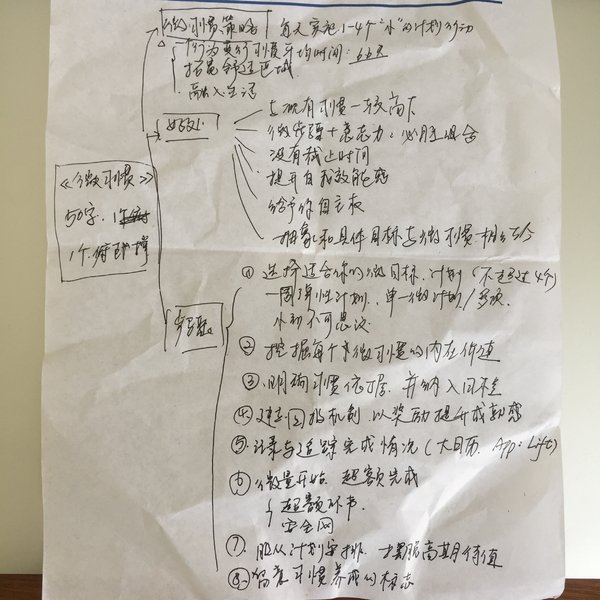 微习惯策略：每天实施1-4个"小"的计划行动
一行为变习惯平均时间：66天
拓宽舒适区域
融入生活
好处
与现有习惯一较高下
微步骤+意志力：必胜组合
没有截止时间
提升自我效能感
给予你自主权
抽象和具体目标与微习惯相结合
《微习惯》
50字、1
1个俯卧撑
步骤
① 选择适合你的微目标、计划（不超过4个）
一周弹性计划、单一微计划/多项
小到不可思议
② 挖掘每个微习惯的内在价值
③ 明确习惯依据、并纳入日程
④ 建立回报机制、以奖励提升成就感
⑤ 记录与追踪完成情况（大日历、App：Lift）
⑥ 微量开始、超额完成
超额环节
安全网
⑦ 服从计划安排、摆脱高期待值
⑧ 留意习惯养成的标志